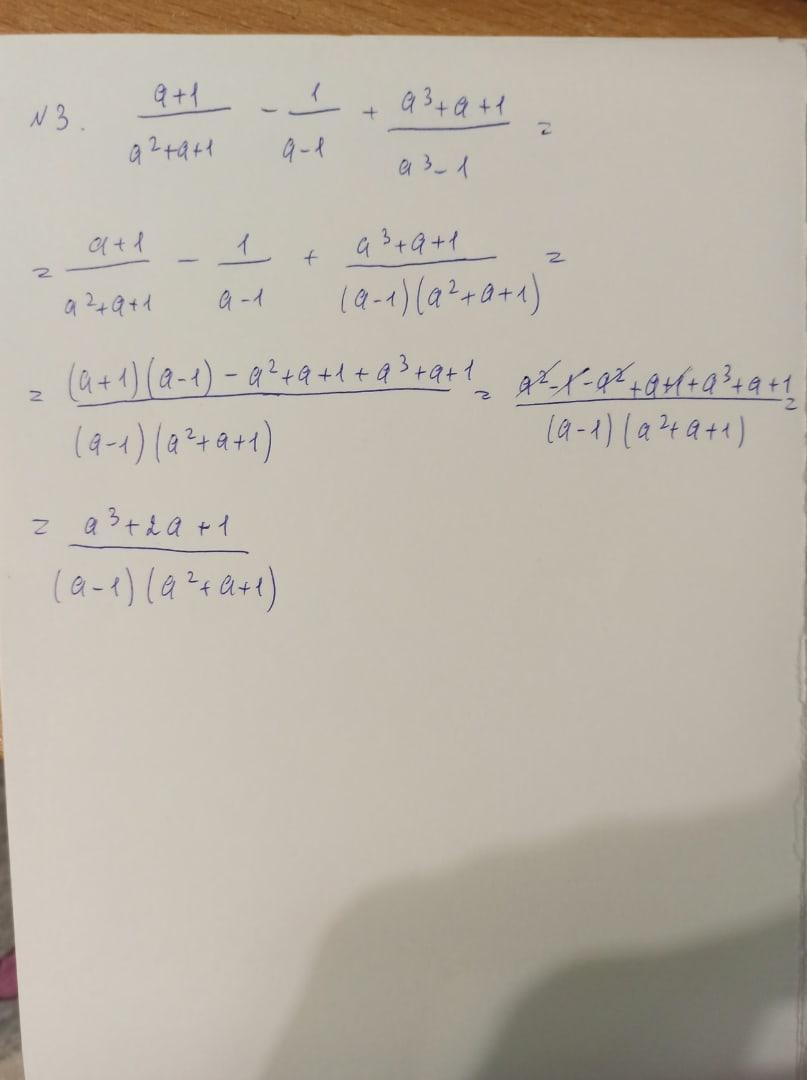 N3. \frac{a+1}{a^2+a+1} - \frac{1}{a-1} + \frac{a^3+a+1}{a^3-1} =
= \frac{a+1}{a^2+a+1} - \frac{1}{a-1} + \frac{a^3+a+1}{(a-1)(a^2+a+1)} =
= \frac{(a+1)(a-1) - a^2+a+1+a^3+a+1}{(a-1)(a^2+a+1)} = \frac{a^2-1-a^2+a+1+a^3+a+1}{(a-1)(a^2+a+1)} =
= \frac{a^3+2a+1}{(a-1)(a^2+a+1)}